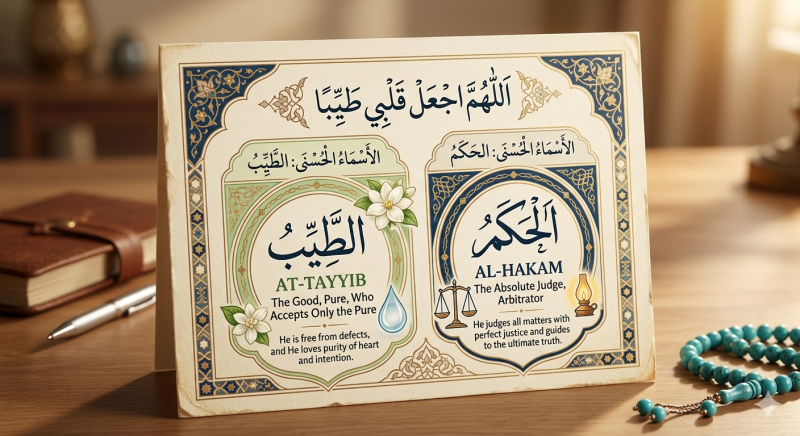 اَللّٰهُمَّ اجْعَلْ قَلْبِي طَيِّبًا
الأَسْمَاءُ الْحُسْنَى: الطَّيِّبُ
الطَّيِّبُ
AT-TAYYIB
The Good, Pure, Who
Accepts Only the Pure
He is free from defects,
and He loves purity of heart
and intention.
الأَسْمَاءُ الْحُسْنَى: الحَكَمُ
اَلْحَكَمُ
AL-HAKAM
The Absolute Judge,
Arbitrator
He judges all matters with
perfect justice and guides
to the ultimate truth.